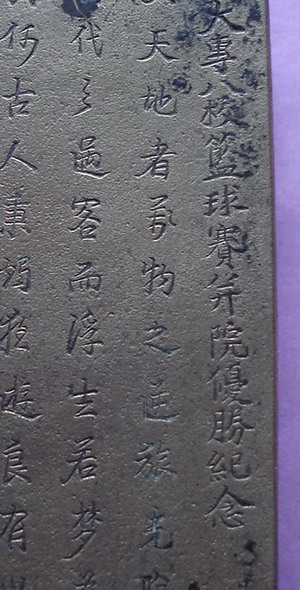 大專八校籃球賽弁院優勝紀念
天地者萬物之逆旅光陰
代之過客而浮生若梦為
何古人秉燭夜遊良有以